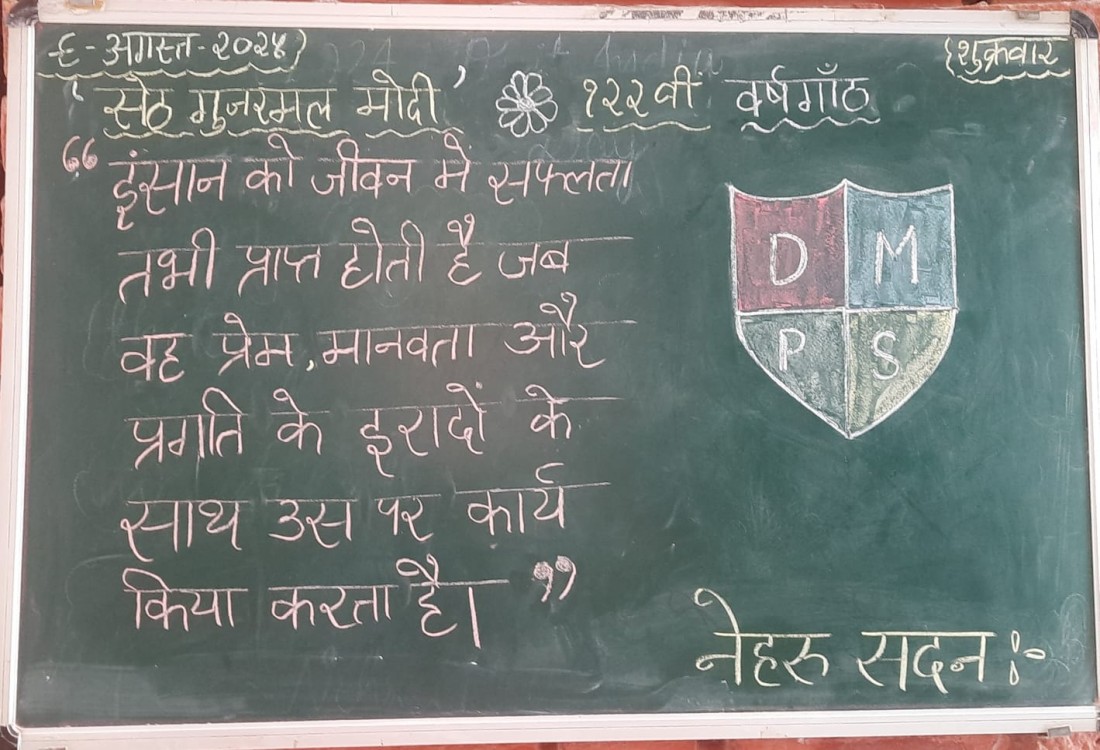 ९-अगस्त-२०२४} {शुक्रवार
'सेठ गुजरमल मोदी' १२२वीं वर्षगाँठ
“इंसान को जीवन में सफलता
तभी प्राप्त होती है जब
वह प्रेम, मानवता और
प्रगति के इरादों के
साथ उस पर कार्य
किया करता है।”
D M
P S
नेहरु सदन :-